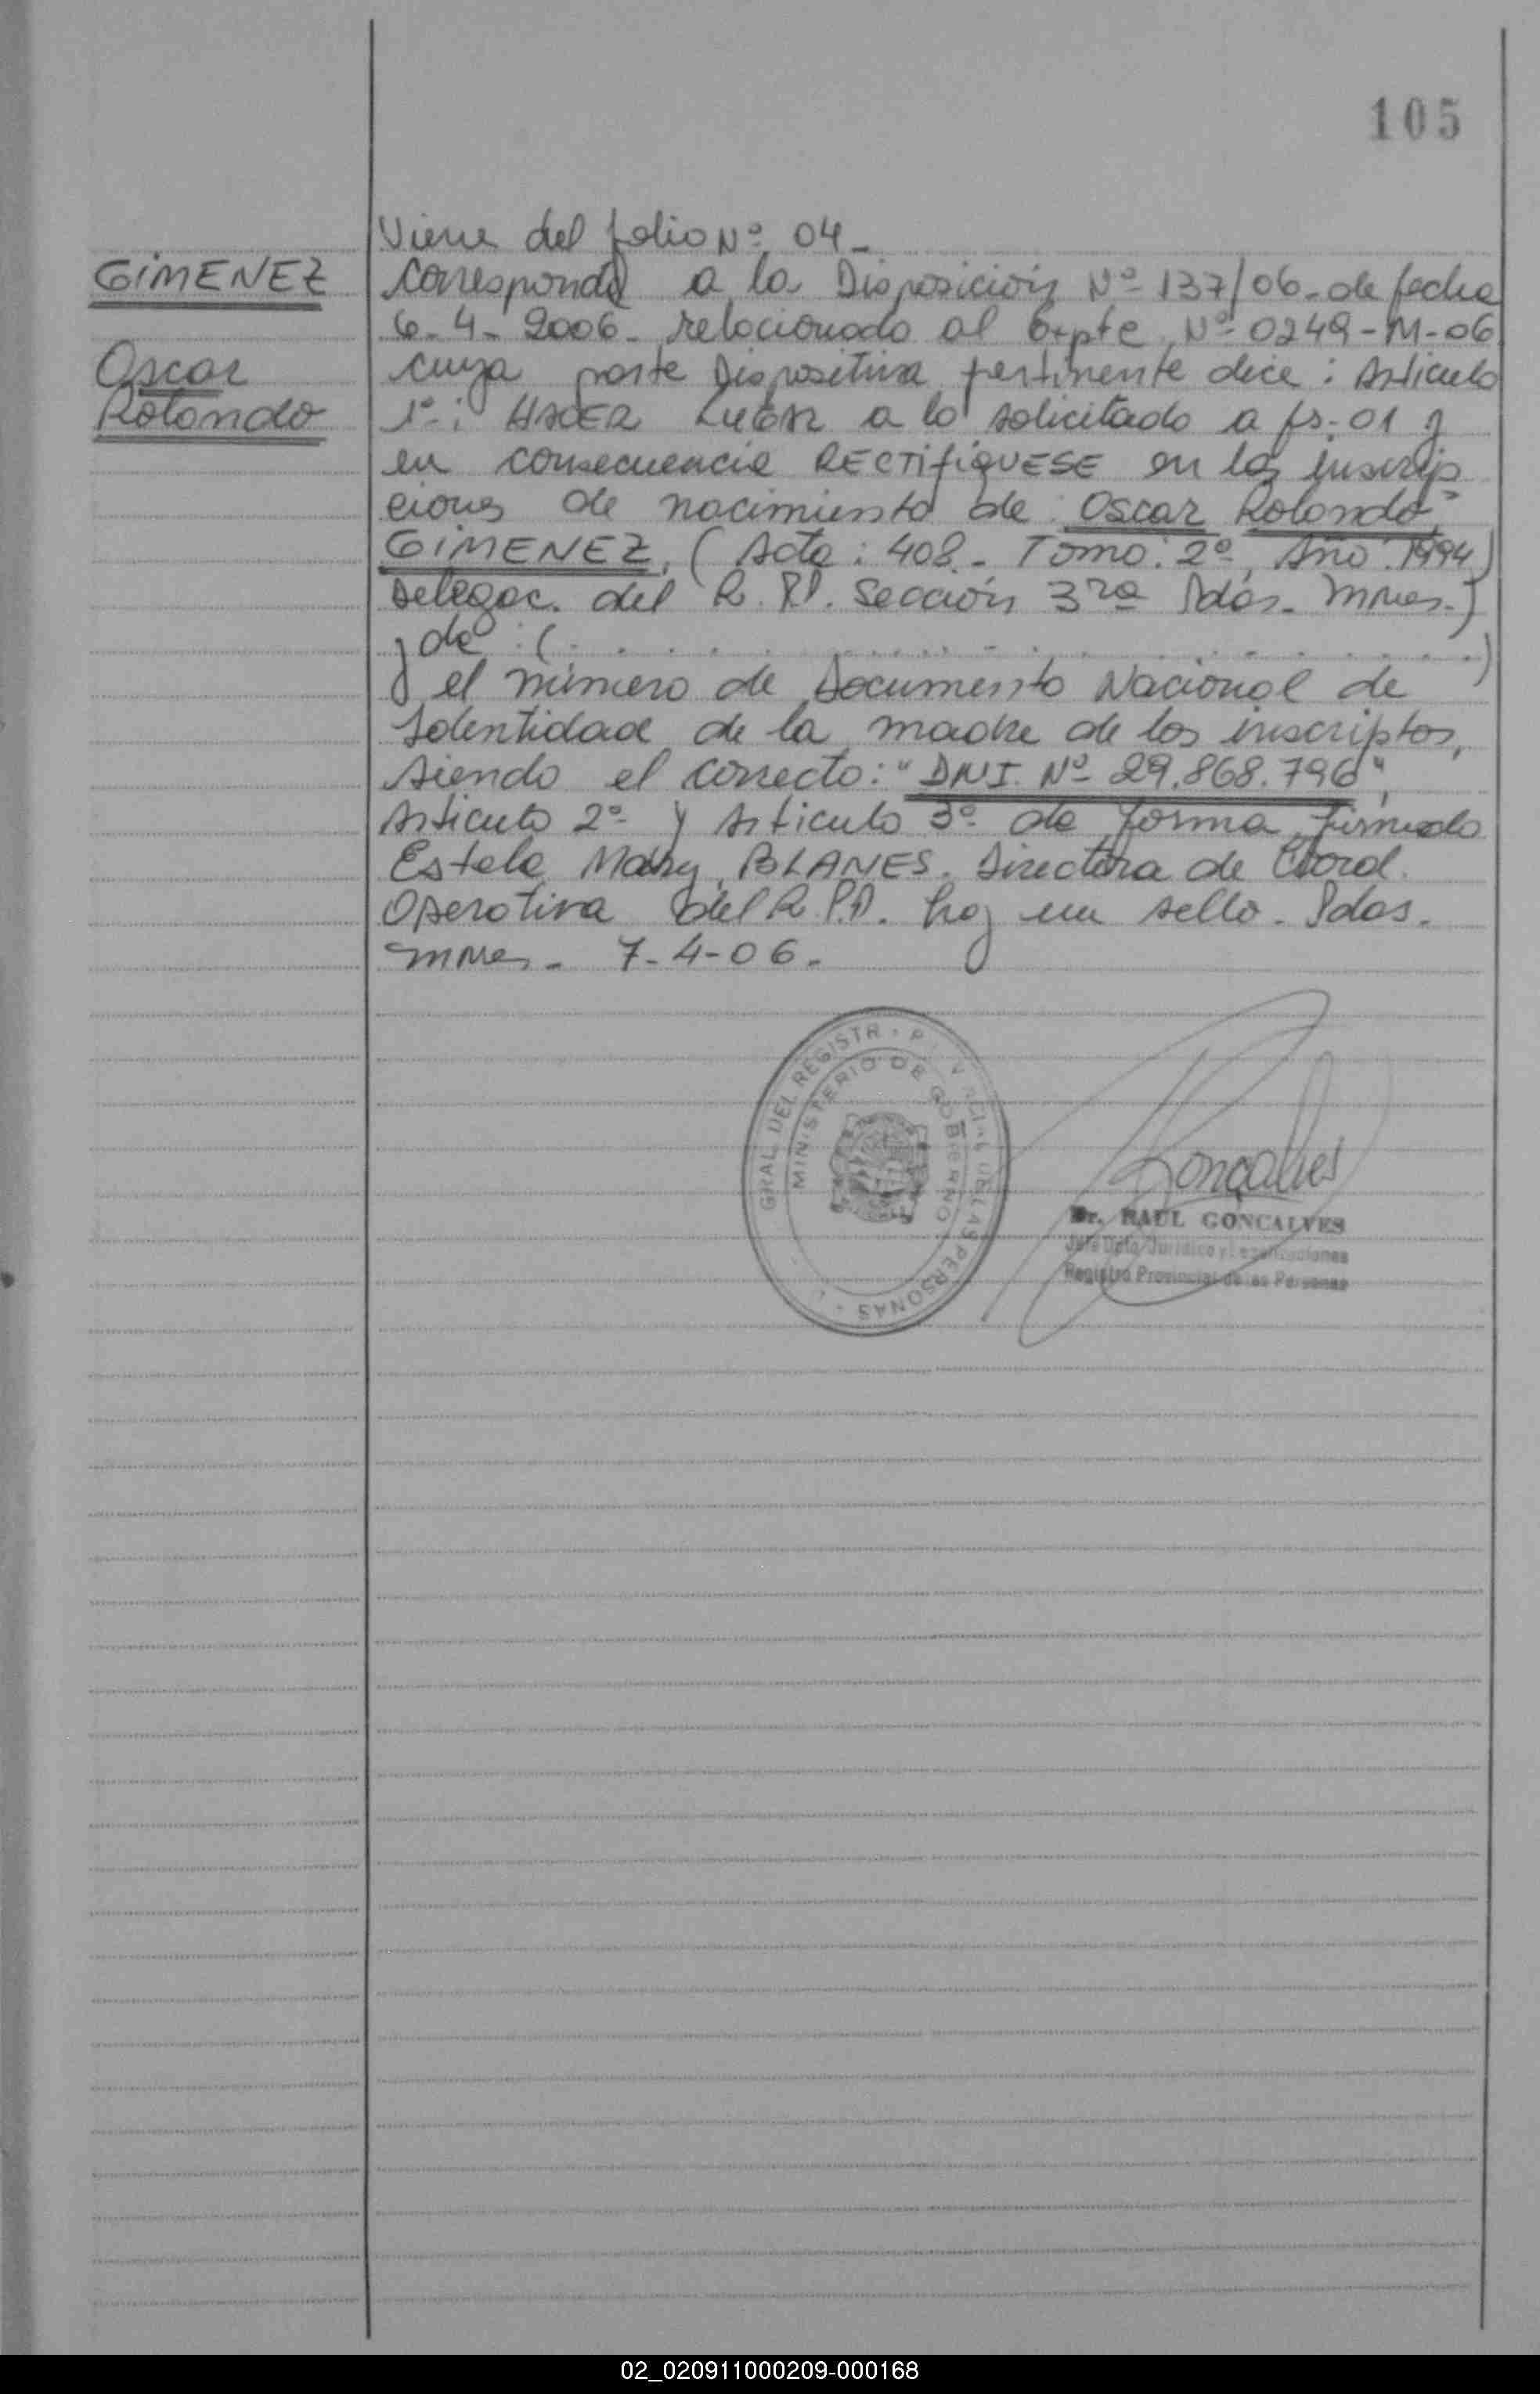 105
Viene del folio Nº 04-
GIMENEZ
Oscar
Rolando
Corresponde a la Disposición Nº 137/06- de fecha
6-4-2006- relacionado al Expte Nº 0249-M-06
cuya parte Dispositiva pertinente dice: Articulo
1º: HACER LUGAR a lo solicitado a fs. 01 y
en consecuencia RECTIFIQUESE en las inscrip
ciones de nacimiento de Oscar Rolando
GIMENEZ, (Acta: 408- Tomo: 2º, Año: 1994)
Delegac. del R. P.P. Sección 3ra Pdas. Mnes.)
y de: (. . . . . . . . . . . . . . . . . . . .)
y el número de Documento Nacional de
Identidad de la madre de los inscriptos,
siendo el correcto: "DNI. Nº 29.868.796",
Articulo 2º y Articulo 3º de forma, firmado
Estela Mary BLANES. Directora de Coord.
Operativa del R.P.P. hay un sello. Pdas.
Mnes. 7-4-06.
GRAL. DEL REGISTR PERSONAS
MINISTERIO DE GOBIERNO
Goncalves
Dr. RAUL GONCALVES
Jefe Dpto Jurídico y
Registro Provincial de las Personas
02_020911000209-000168